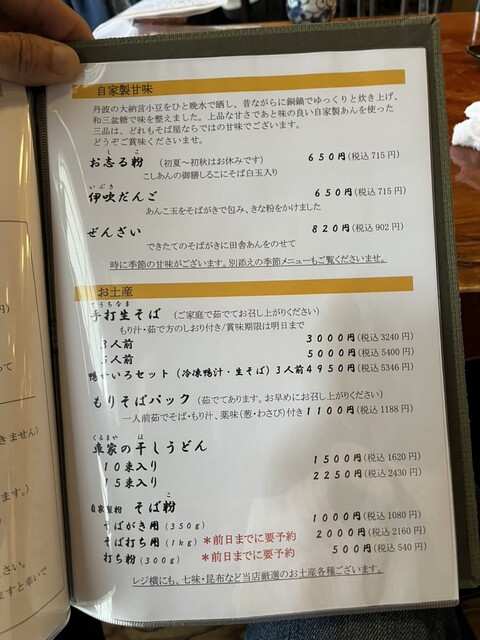 自家製甘味
丹波の大納言小豆をひと晩水で晒し、昔ながらに銅鍋でゆっくりと炊き上げ、
和三盆糖で味を整えました。上品な甘さであと味の良い自家製あんを使った
三品は、どれもそば屋ならではの甘味でございます。
どうぞご賞味くださいませ。
お志る粉 (初夏〜初秋はお休みです) 650円(税込 715 円)
こしあんの御膳しるこにそば白玉入り
いぶき
伊吹だんご 650円(税込 715 円)
あんこ玉をそばがきで包み、きな粉をかけました
ぜんざい 820円(税込 902 円)
できたてのそばがきに田舎あんをのせて
時に季節の甘味がございます。別添えの季節メニューもご覧くださいませ。
お土産
てうちなま
手打生そば (ご家庭で茹でてお召し上がりください)
もり汁・茹で方のしおり付き/賞味期限は明日まで
3人前 3000円(税込 3240 円)
5人前 5000円(税込 5400 円)
鴨せいろセット (冷凍鴨汁・生そば) 3人前 4950円(税込 5346 円)
もりそばパック (茹でてあります。お早めにお召し上がりください)
一人前茹でそば・もり汁、薬味(葱・わさび)付き 1100円(税込 1188 円)
くるまや は
車家の干しうどん
10束入り 1500円(税込 1620 円)
15束入り 2250円(税込 2430 円)
こ
自家製粉 そば粉
そばがき用 (350g) 1000円(税込 1080 円)
そば打ち用 (1kg) *前日までに要予約 2000円(税込 2160 円)
打ち粉 (300g) *前日までに要予約 500円(税込 540 円)
レジ横にも、七味・昆布など当店厳選のお土産各種ございます。